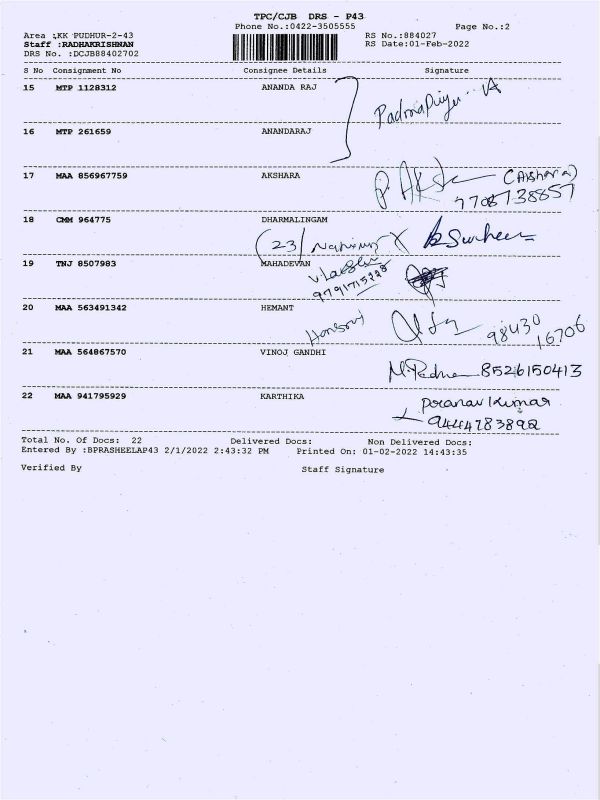 TPC/CJB DRS - P43
Phone No.:0422-3505555 Page No.:2
Area :KK PUDHUR-2-43 RS No.:884027
Staff :RADHAKRISHNAN RS Date:01-Feb-2022
DRS No. :DCJB88402702
S No Consignment No Consignee Details Signature
15 MTP 1128312 ANANDA RAJ
Padmapriya
16 MTP 261659 ANANDARAJ
17 MAA 856967759 AKSHARA (Akshara)
7708738857
18 CMM 964775 DHARMALINGAM
(23)
19 TNJ 8507983 MAHADEVAN
9791715228
20 MAA 563491342 HEMANT
98430
16706
21 MAA 564867570 VINOJ GANDHI
N.Padma 8526150413
22 MAA 941795929 KARTHIKA Pranav Kumar
9444783892
Total No. Of Docs: 22 Delivered Docs: Non Delivered Docs:
Entered By :BPRASHEELAP43 2/1/2022 2:43:32 PM Printed On: 01-02-2022 14:43:35
Verified By Staff Signature